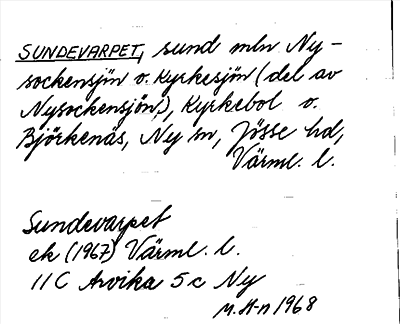 SUNDEVARPET, sund mln Ny-
sockensjön o. Kyrkesjön (del av
Nysockensjön), Kyrkebol o.
Björkenäs, Ny sn, Jösse hd,
Värml. l.
Sundevarpet
ek (1967) Värml. l.
11C Arvika 5c Ny
M. H-n 1968